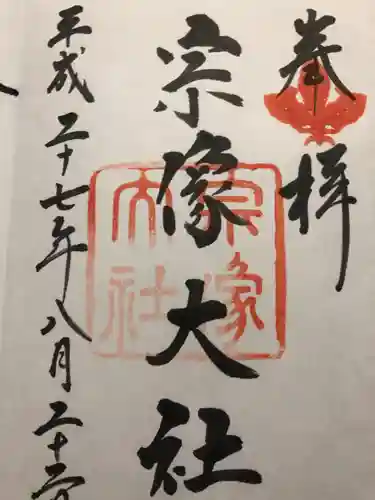 奉拝
宗像大社
宗像大社
平成二十七年八月二十二